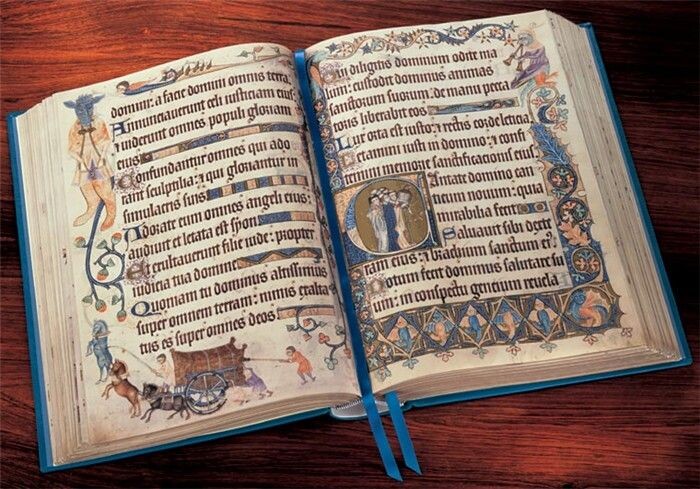 domini: a facie domini omnis terra
Annunciaverunt celi iusticiam eius
& uiderunt omnes populi gloriam
eius
Confundantur omnes qui ado
rant sculptilia: & qui gloriantur in
simulacris suis
Adorate eum omnes angeli eius:
audiuit et letata est syon
Et exultauerunt filie iude: propter
iudicia tua domine
Quoniam tu dominus altissimus
super omnem terram: nimis exalta
tus es super omnes deos
Qui diligitis dominum odite ma
lum: custodit dominus animas
sanctorum suorum: de manu pecca
toris liberabit eos
Lux orta est iusto: & rectis corde leticia
Letamini iusti in domino: & confi
temini memorie sanctificacionis eius
Cantate domino can
ticum nouum: quia
mirabilia fecit
Saluauit sibi dext
eius: & brachium sanctum ei'
Notum fecit dominus salutare su
um: in conspectu gencium reuela